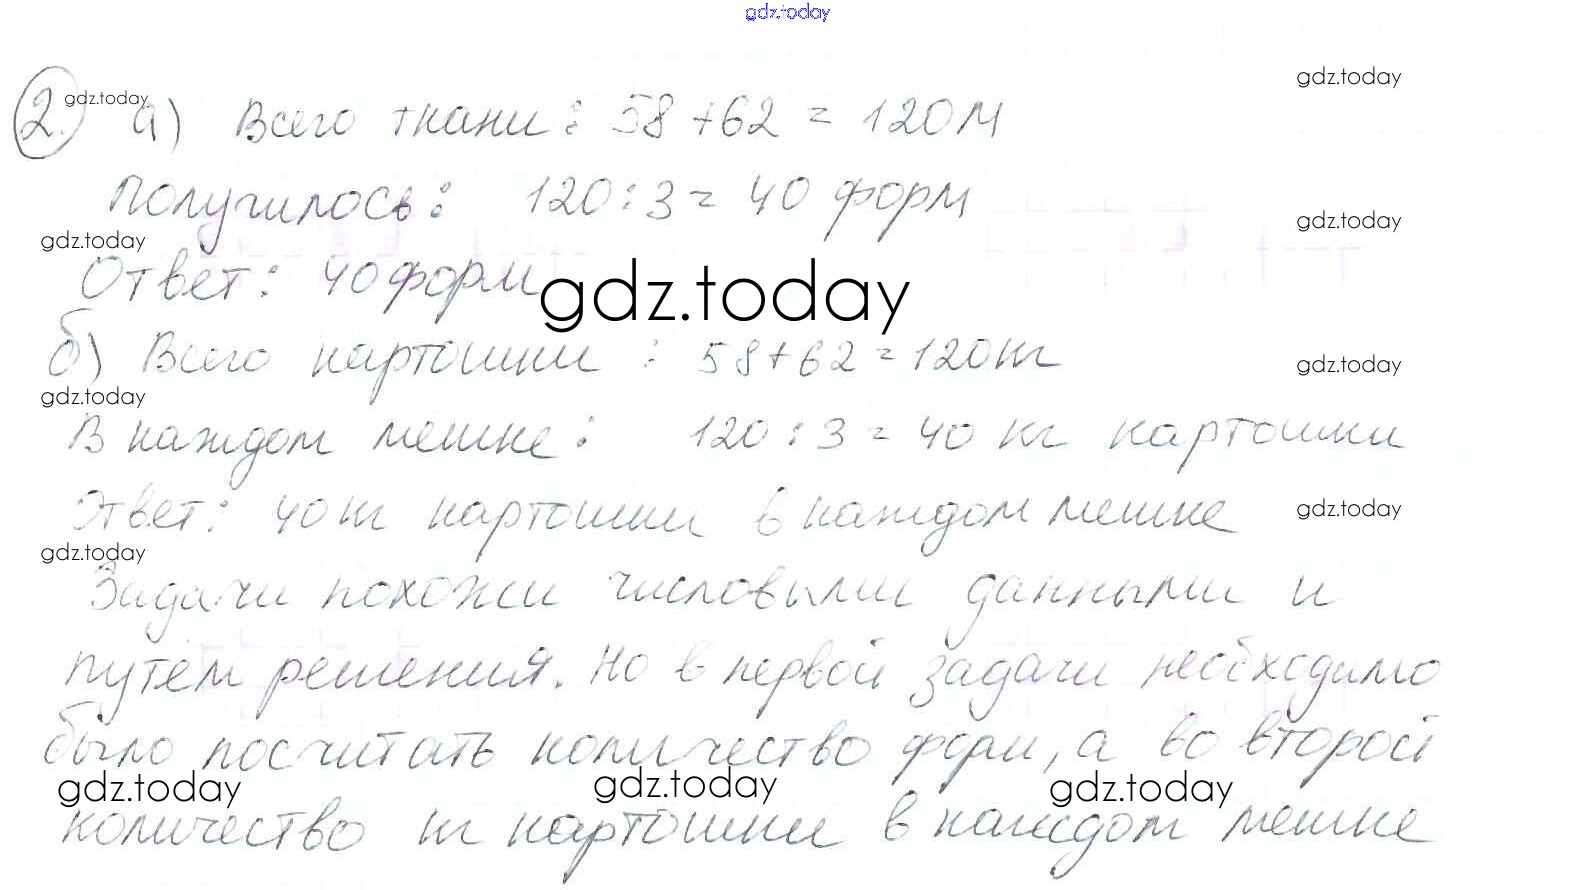 gdz.today
gdz.today
2. gdz.today а) Всего ткани: 58+62 = 120м
Получилось: 120:3= 40 форм
gdz.today
gdz.today
Ответ: 40 форм
gdz.today
б) Всего картошки : 58+62=120кг
gdz.today
gdz.today
В каждом мешке: 120:3= 40 кг картошки
Ответ: 40кг картошки в каждом мешке
gdz.today
gdz.today
Задачи похожи числовыми данными и
путем решения. Но в первой задачи необходимо
было посчитать количество форм, а во второй
gdz.today gdz.today gdz.today
количество кг картошки в каждом мешке